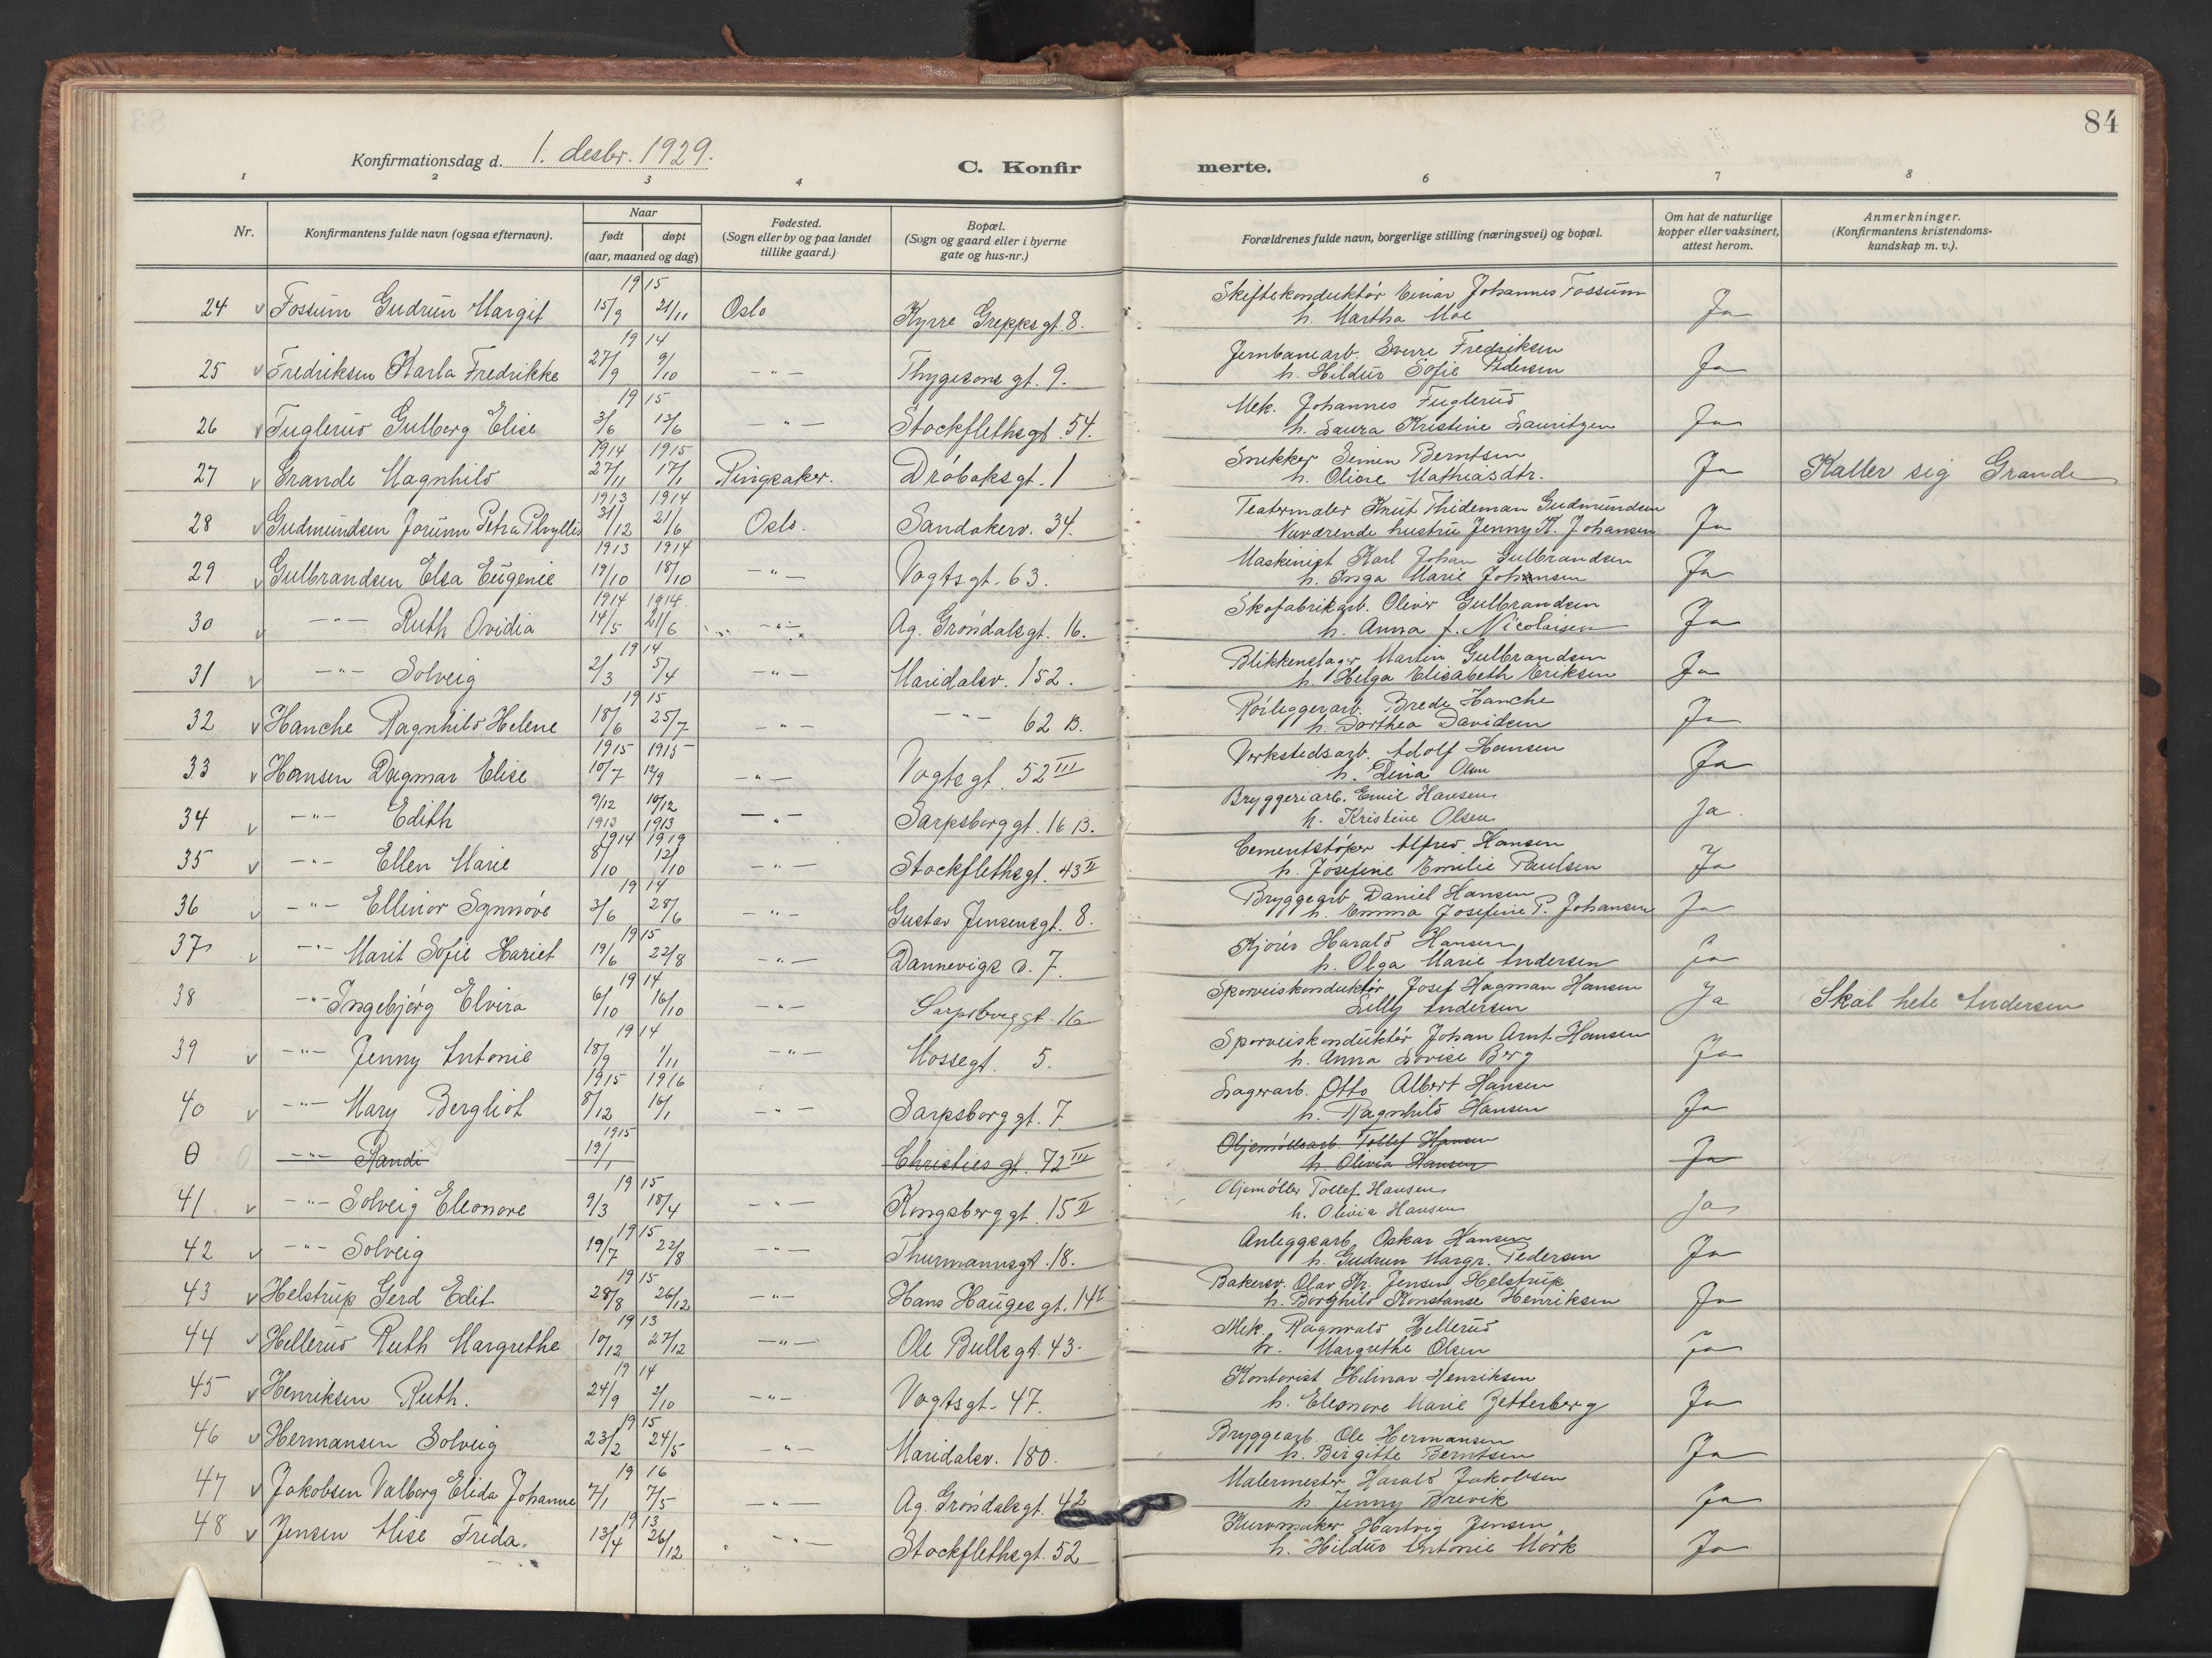 84
Konfirmationsdag d. 1. desbr. 1929.
C. Konfir
merte.
1 2 3 4 6 7 8
Nr.
Konfirmantens fulde navn (ogsaa efternavn).
Naar
født døpt
(aar, maaned og dag)
Fødested.
(Sogn eller by og paa landet
tillike gaard.)
Bopæl.
(Sogn og gaard eller i byerne
gate og hus-nr.)
Forældrenes fulde navn, borgerlige stilling (næringsvei) og bopæl.
Om hat de naturlige
kopper eller vaksinert,
attest herom.
Anmerkninger.
(Konfirmantens kristendoms-
kundskap m. v.).
1915
Skiftekonduktör Einar Johannes Fossum
24 v Fossum Gudrun Margit 15/9 21/11 Oslo Kyrre Greppsgt. 8. h. Martha Moe Ja
1914
Jernbanearb. Sverre Fredriksen
25 v Fredriksen Karla Fredrikke 27/9 9/10 -"- Thygesons gt. 9. h. Hildur Sofie Pedersen Ja
1915
Mek. Johannes Fuglerud
26 v Fuglerud Gulborg Elise 3/6 13/6 -"- Stockflethsgt. 54. h. Laura Kristine Lauritzen Ja
1914 1915
Snekker Simen Berntsen
27 v Grande Magnhild 27/11 17/1 Ringsaker. Dröbaksgt. 1 h. Oline Mathiasdtr. Ja Kaller sig Grande
1913 1914
Teatermaler Knut Thideman Gudmundsen
28 v Gudmundsen Jorunn Petra Phyllis 31/12 21/6 Oslo. Sandakerv. 34. Nuværende hustru Jenny K. Johansen Ja
1913 1914
Maskinist Karl Johan Gulbrandsen
29 v Gulbrandsen Elsa Eugenie 19/10 18/10 -"- Vogtsgt. 63. h. Inga Marie Johansen Ja
1914 1914.
Skofabrikarb. Oliver Gulbrandsen
30 v -"- Ruth Ovidia 14/5 21/6 -"- Ag. Gröndalsgt. 16. h. Anna f. Nicolaisen Ja
1914
Blikkenslager Martin Gulbrandsen
31 v -"- Solveig 2/3 5/4 -"- Maridalsv. 152. h. Helga Elisabeth Eriksen Ja
1915
Rörleggerarb. Brede Hanche
32 v Hanche Ragnhild Helene 18/6 25/7 -"- -"- 62 B. h. Dorthea Davidsen Ja
1915 1915
Verkstedsarb. Adolf Hansen
33 v Hansen Dagmar Elise 10/7 12/9 -"- Vogtsgt. 52 III h. Lina Olsen Ja
Bryggeriarb. Emil Hansen
34 v -"- Edith 9/12 1913 10/12 1913 -"- Sarpsborggt. 16 B. h. Kristine Olsen Ja.
1914 1919
Cementstöper Alfred Hansen
35 v -"- Ellen Marie 8/10 12/10 -"- Stockflethsgt. 43 II h. Josefine Emilie Paulsen Ja
1914
Bryggearb. Daniel Hansen
36 v -"- Ellinor Synnöve 3/6 28/6 -"- Gustav Jensensgt. 8. h. Emma Josefine P. Johansen Ja
1915
Kjörer Harald Hansen
37 v -"- Marit Sofie Hariet 19/6 22/8 -"- Dannevigs v. 7. h. Olga Marie Andersen Ja
1914
Sporveiskonduktör Josef Hagman Hansen
38 -"- Ingebjörg Elvira 6/10 16/10 -"- Sarpsborggt. 16 Lilly Andersen Ja Skal hete Andersen
1914
Sporveiskonduktör Johan Arnt Hansen
39 v -"- Jenny Antonie 18/9 1/11 -"- Mossegt. 5. h. Anna Lovise Berg Ja
1915 1916
Lagerarb. Otto Albert Hansen
40 v -"- Mary Bergliot 8/12 16/1 -"- Sarpsborggt. 7 h. Ragnhild Hansen Ja
1915
Oljemöllearb. Tollef Hansen
0 -"- Randi 19/1 Christies gt. 72 III h. Olivia Hansen Ja
1915
Oljemöller Tollef Hansen
41 v -"- Solveig Eleonore 9/3 18/4 -"- Kongsberggt. 15 II h. Olivia Hansen Ja
1915
Anleggsarb. Oskar Hansen
42 v -"- Solveig 19/7 22/8 -"- Thurmannsgt. 18. h. Gudrun Margr. Pedersen Ja
1915
Bakersv. Olav Kr. Jensen Helstrup
43 v Helstrup Gerd Edit 28/8 26/12 -"- Hans Haugesgt. 14 I h. Borghild Konstanse Henriksen Ja
1913
Mek. Ragnvald Hellerud
44 v Hellerud Ruth Margrethe 10/12 27/12 -"- Ole Bullsgt. 43. h. Margrethe Olsen Ja
1914
Kontorist Hilmar Henriksen
45 v Henriksen Ruth. 24/9 2/10 -"- Vogtsgt. 47. h. Eleonore Marie Zetterberg Ja
1915
Bryggearb. Ole Hermansen
46 v Hermansen Solveig 23/2 24/5 -"- Maridalsv. 180. h. Birgitte Berntsen Ja
1916
Malermester Harald Jakobsen
47 v Jakobsen Valborg Elida Johanne 7/1 7/5 -"- Ag. Gröndalsgt. 42 h. Jenny Brevik Ja
1913
Kurvmaker Hartvig Jensen
48 v Jensen Alise Frida. 13/4 26/12 -"- Stockflethsgt. 52 h. Hildur Antonie Mörk Ja